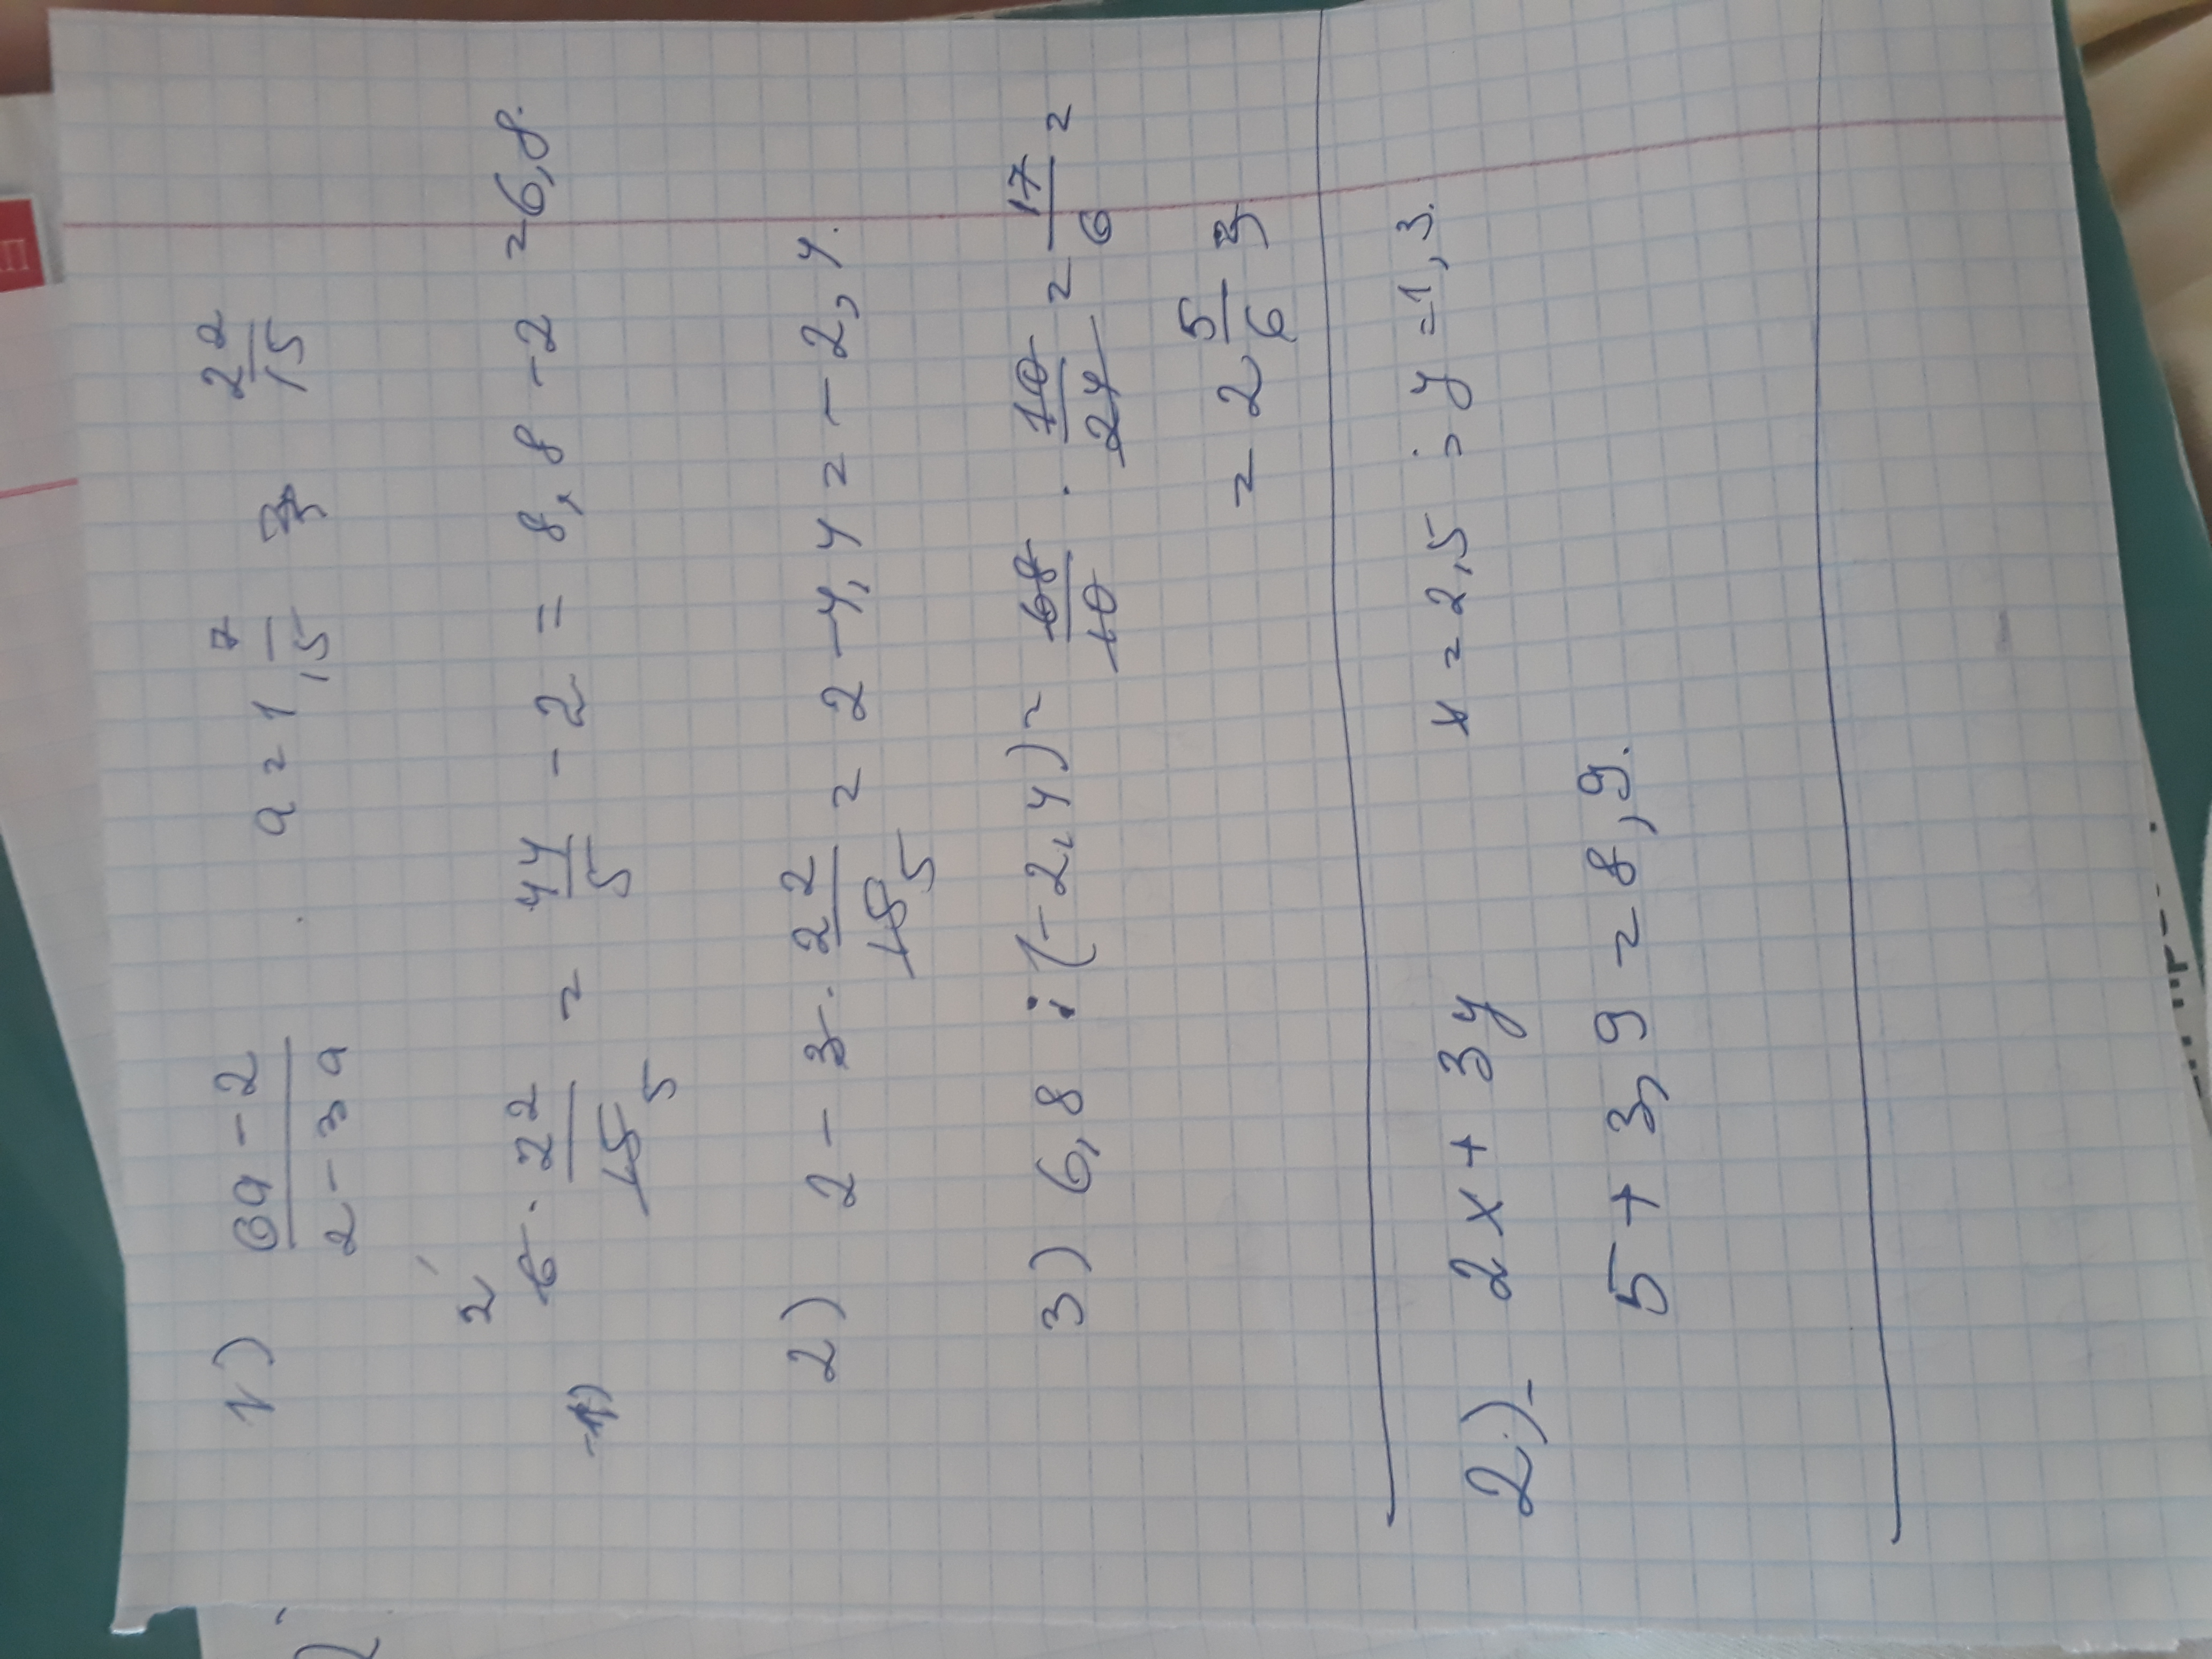 1) (6a - 2)/(2 - 3a) a = 1 7/15 22/15
1) 6 · 22/15 = 44/5 - 2 = 8,8 - 2 = 6,8.
2 5
2) 2 - 3 · 22/15 = 2 - 4,4 = - 2,4.
5
3) 6,8 : (-2,4) = 68/10 · 10/24 = 17/6 =
= 2 5/6
2.) 2x + 3y x = 2,5 ; y = 1,3.
5 + 3,9 = 8,9.